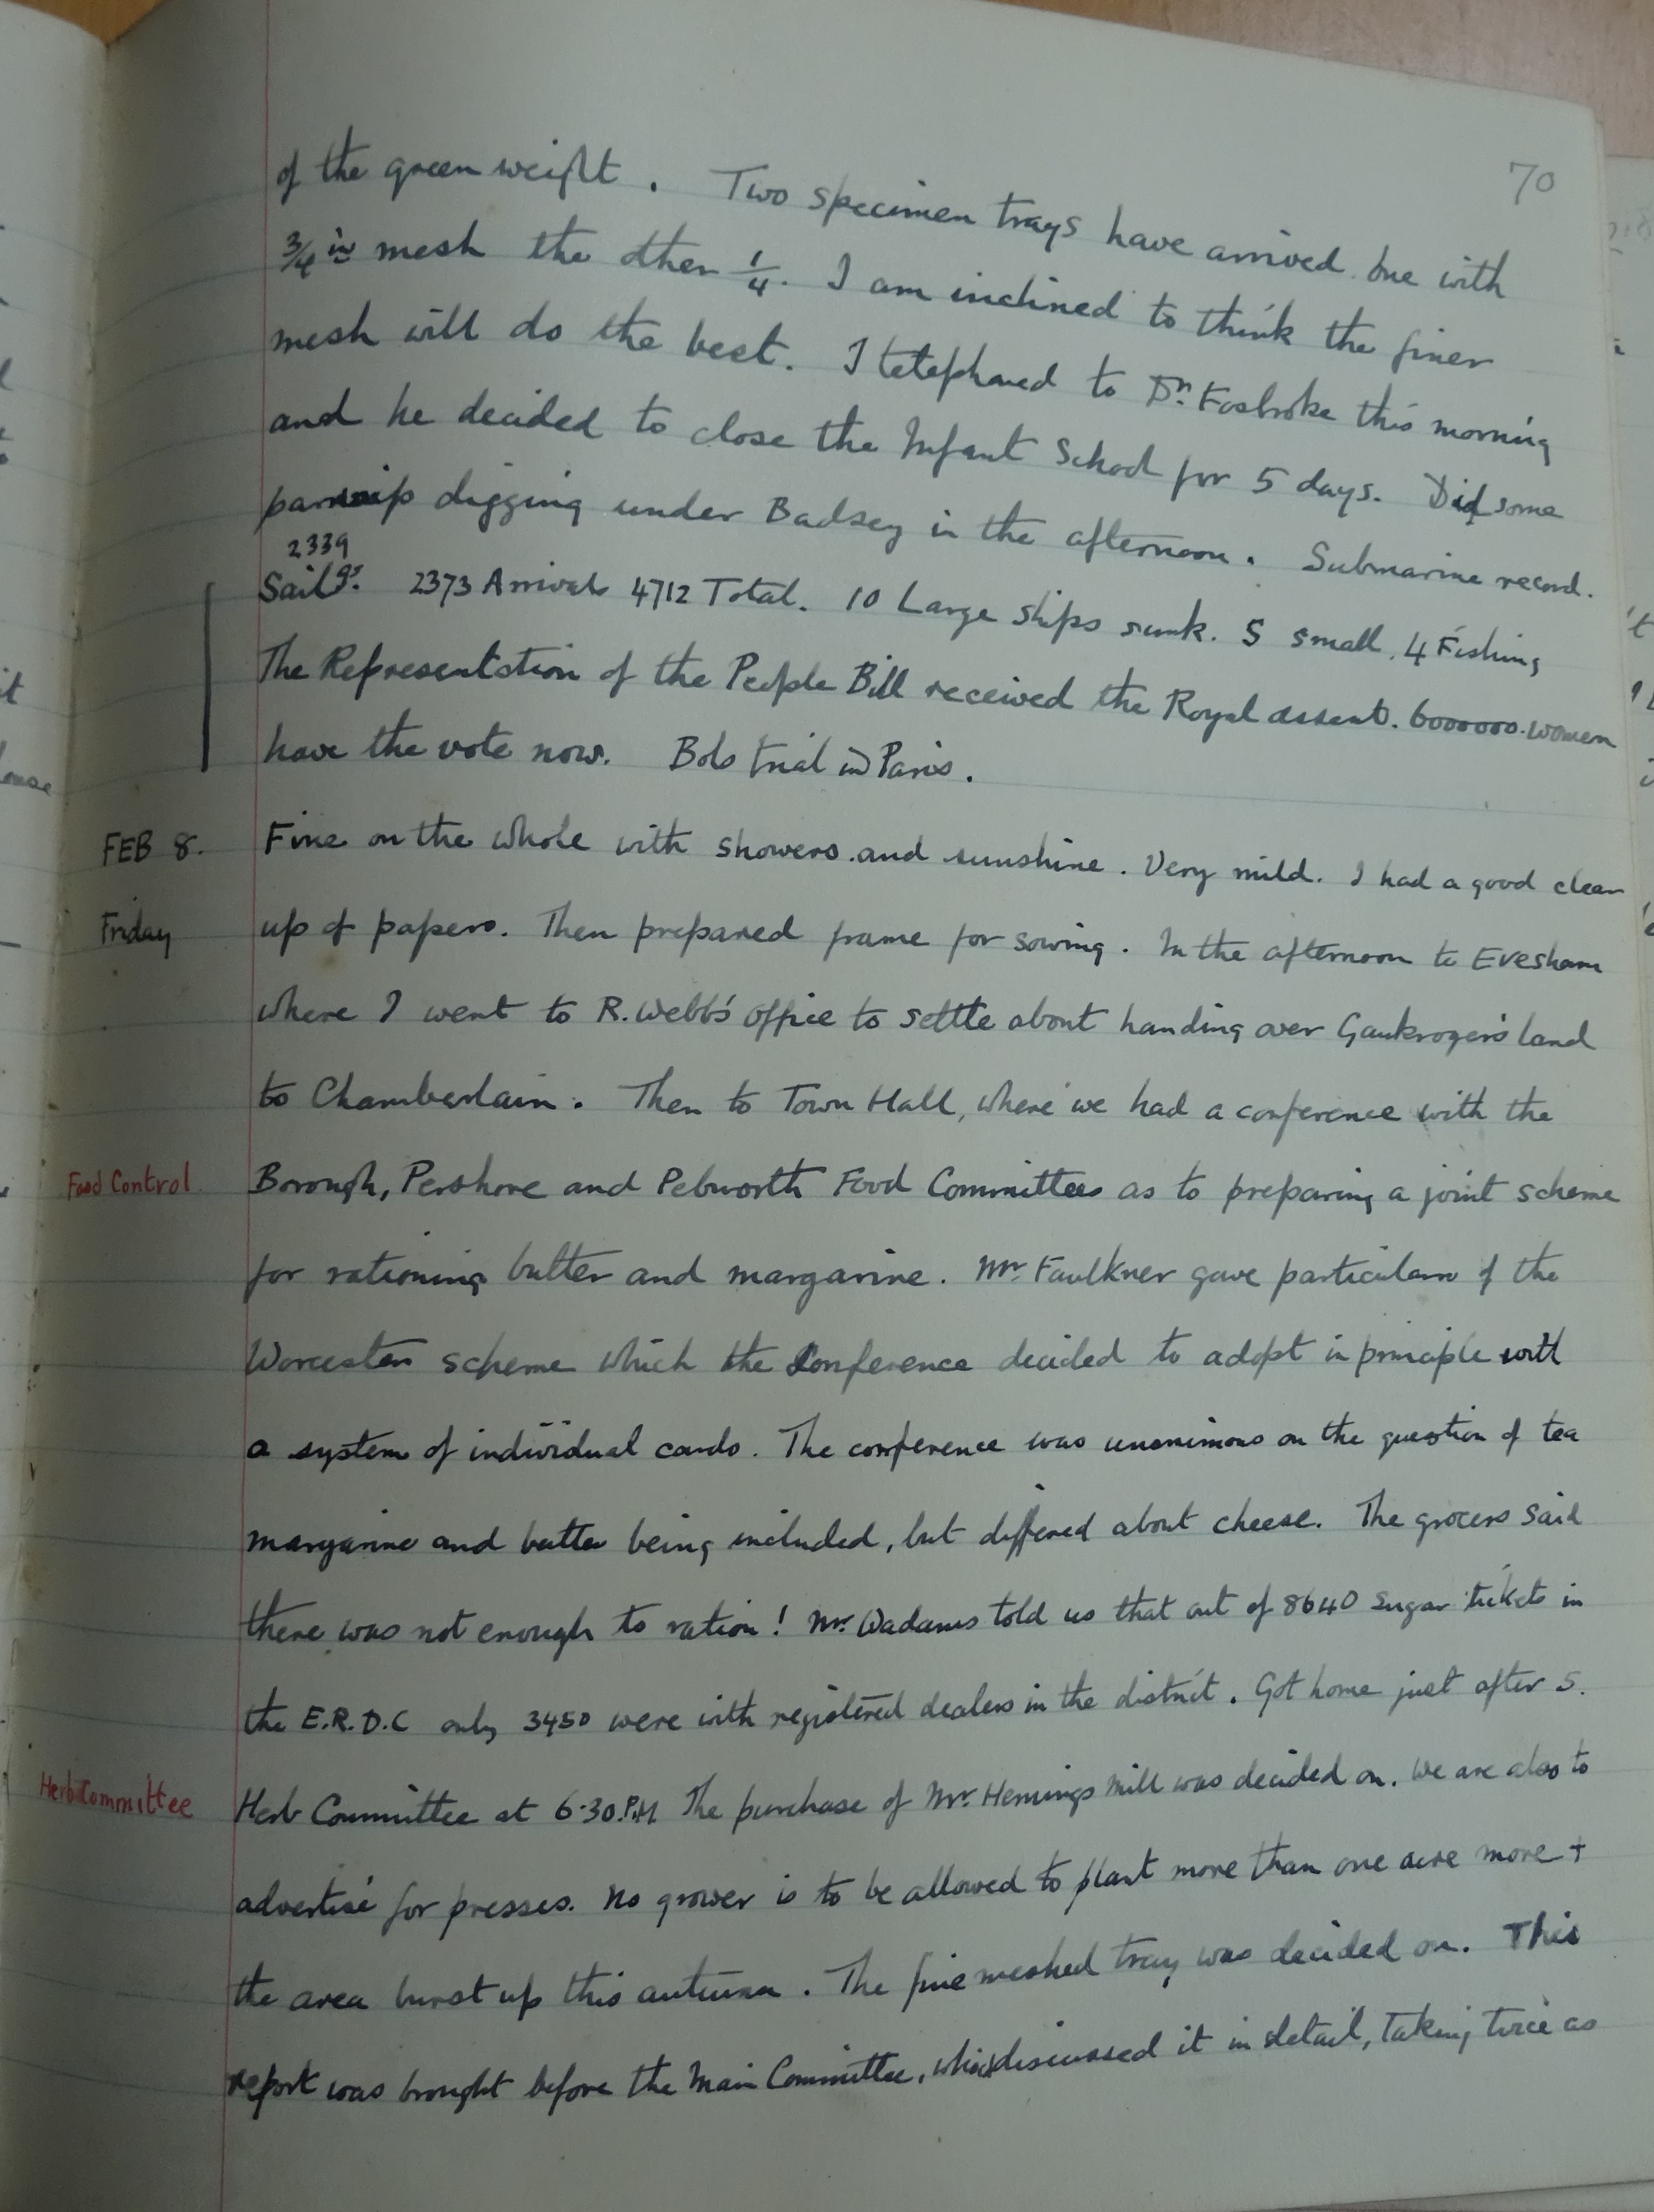 70
of the green weight. Two specimen trays have arrived one with
3/4 in mesh the other 1/4. I am inclined to think the finer
mesh will do the best. I telephoned to Dr. Fosbroke this morning
and he decided to close the Infant School for 5 days. Did some
parsnip digging under Badsey in the afternoon. Submarine record.
2339
Sailgs. 2373 Arrivals 4712 Total. 10 Large ships sunk. 5 small. 4 Fishing
The Representation of the People Bill received the Royal assent. 6000000 women
have the vote now. Bolo trial in Paris.
FEB 8. Fine on the whole with showers and sunshine. Very mild. I had a good clear
Friday up of papers. Then prepared frame for sowing. In the afternoon to Evesham
where I went to R. Webb's office to settle about handing over Gaukroger's land
to Chamberlain. Then to Town Hall, where we had a conference with the
Food Control Borough, Pershore and Pebworth Food Committees as to preparing a joint scheme
for rationing butter and margarine. Mr. Faulkner gave particulars of the
Worcester scheme which the Conference decided to adopt in principle with
a system of individual cards. The conference was unanimous on the question of tea
margarine and butter being included, but differed about cheese. The grocers said
there was not enough to ration! Mr. Wadams told us that out of 8640 sugar tickets in
the E.R.D.C only 3450 were with registered dealers in the district. Got home just after 5.
Herb Committee Herb Committee at 6.30.P.M. The purchase of Mr. Hemings Mill was decided on. We are also to
advertise for presses. No grower is to be allowed to plant more than one acre more +
the area burst up this autumn. The fine meshed tray was decided on. This
report was brought before the Main Committee, which discussed it in detail, taking twice as